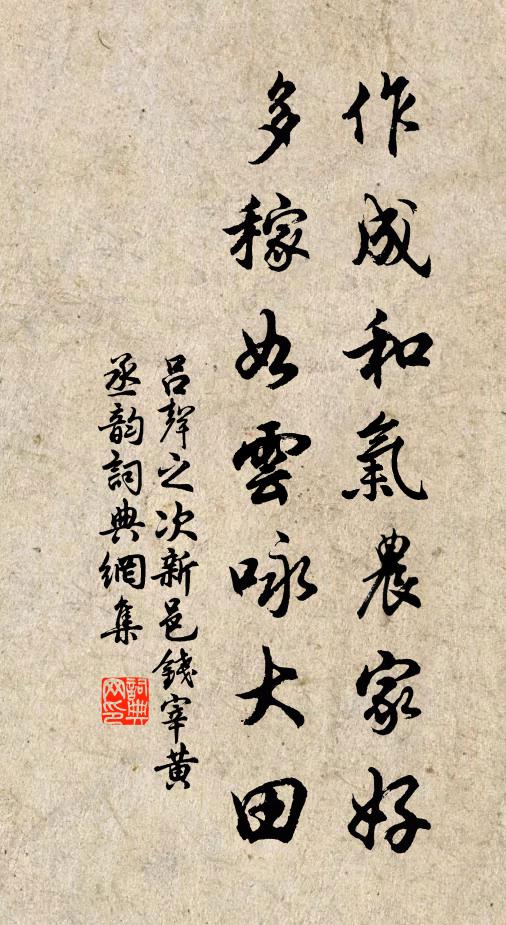 作成和氣農家好
多稼如雲咏大田
呂聲之次新邑錢宰黄
丞韵詞典網集
詞典网印